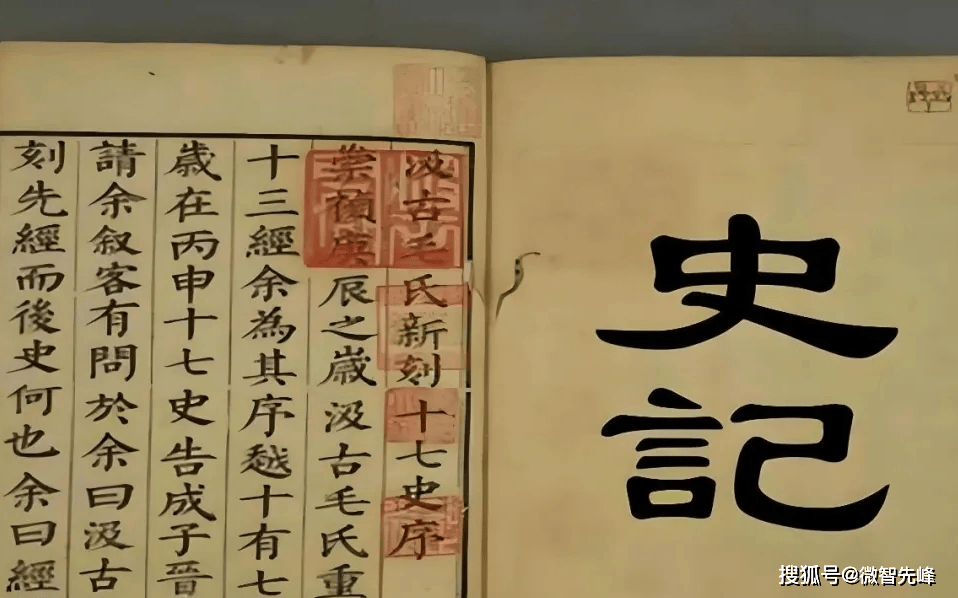 史記
汲古毛氏新刻十七史序
崇禎庚辰之歲汲古毛氏重
十三經余為其序越十有七
歲在丙申十七史告成子晉
請余叙客有問於余曰汲古
刻先經而後史何也余曰經
搜狐号@微智先峰